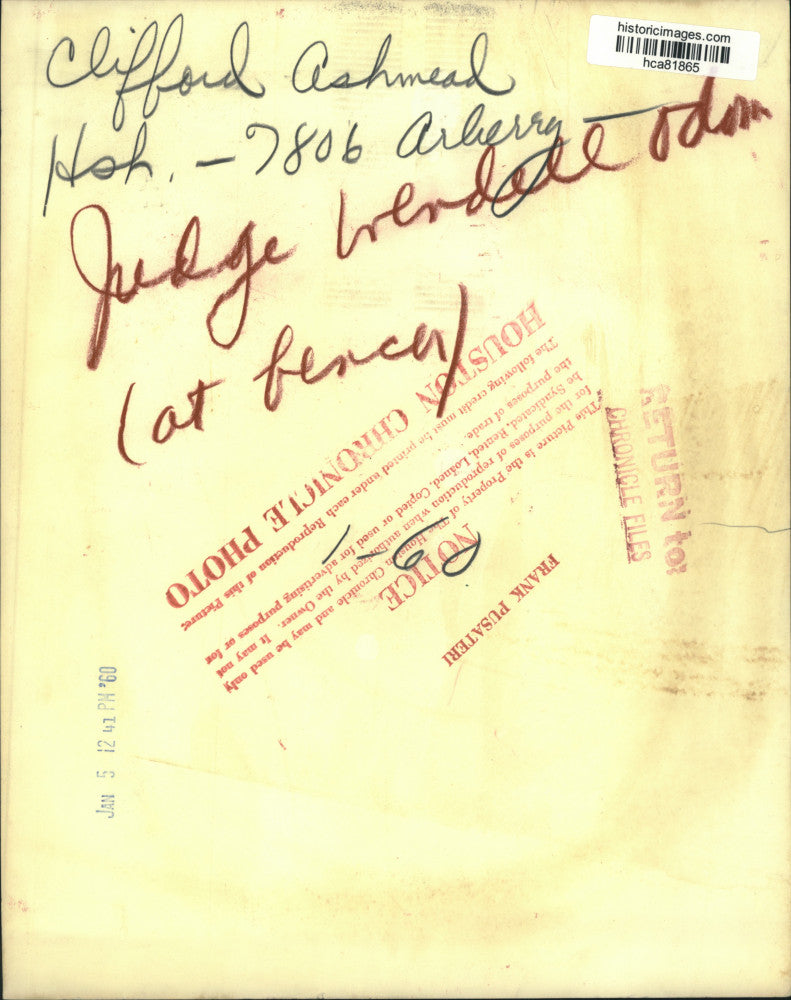 historicimages.com
hca81865
Clifford Ashmead
Hsh. - 7806 Arberry -
Judge Wendell Odom
(at bench)
RETURN to:
CHRONICLE FILES
FRANK PUSATERI
NOTICE
This Picture is the Property of The Houston Chronicle and may be used only
for the purposes of reproduction when authorized by the Owner. It may not
be Syndicated, Rented, Loaned, Copied or used for advertising purposes or for
the purposes of trade.
The following credit must be printed under each Reproduction of this Picture:
HOUSTON CHRONICLE PHOTO
1-60
JAN 5 12 41 PM '60